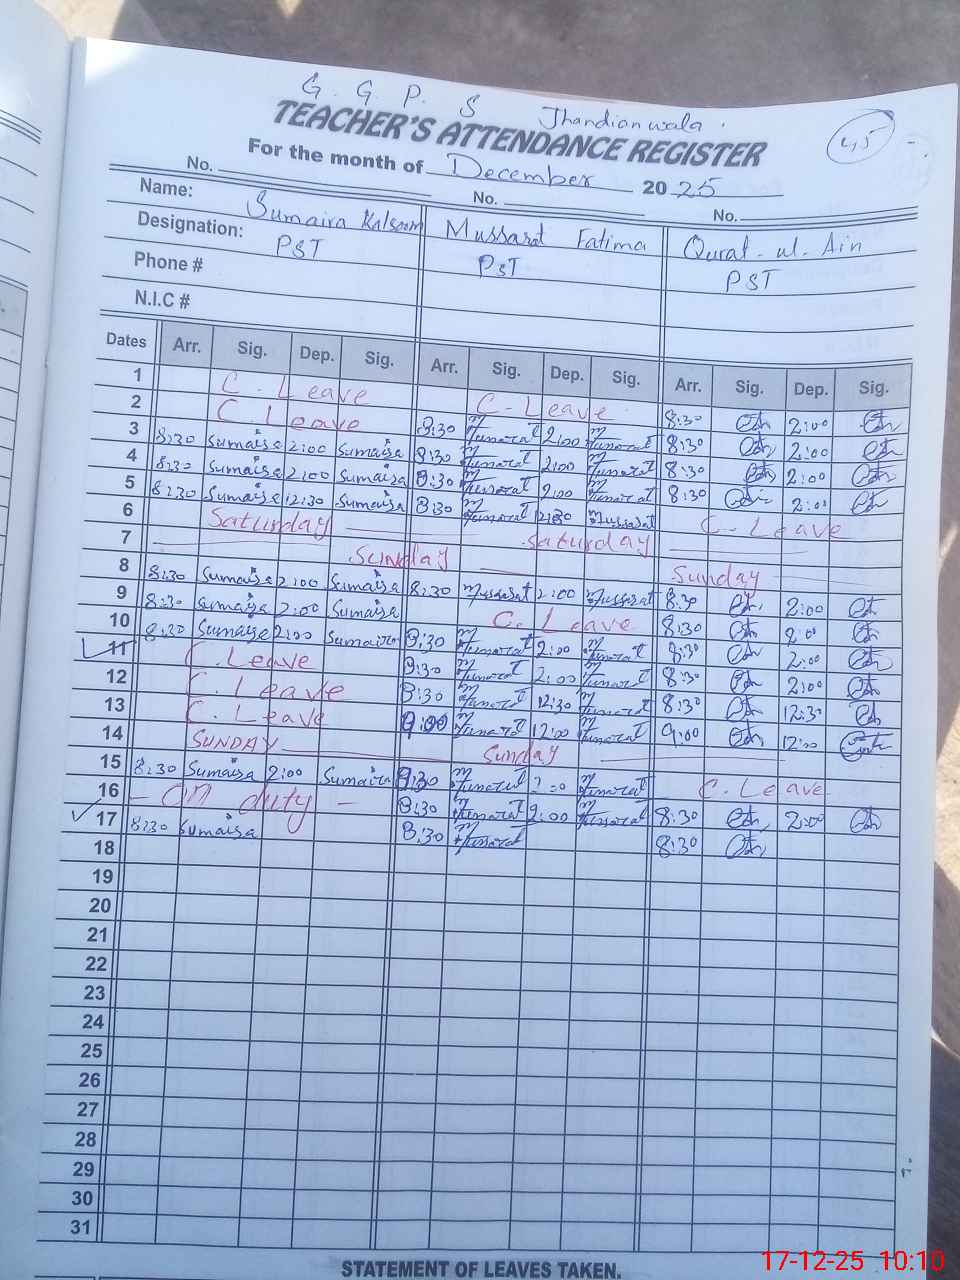 G. G. P. S Jhandianwala.
TEACHER'S ATTENDANCE REGISTER
45
For the month of December 2025
No. No. No.
Name: Sumaira Kalsoom Mussarat Fatima Qurat-ul-Ain
Designation: PST PST PST
Phone #
N.I.C #
Dates Arr. Sig. Dep. Sig. Arr. Sig. Dep. Sig. Arr. Sig. Dep. Sig.
1 C. Leave C-Leave 8:30 2:00
2 C. Leave 8:30 2:00 8:30 2:00
3 8:30 Sumaira 2:00 Sumaira 8:30 2:00 8:30 2:00
4 8:30 Sumaira 2:00 Sumaira 8:30 2:00 8:30 2:00
5 8:30 Sumaira 12:30 Sumaira 8:30 12:30 Mussarat C-Leave
6 Saturday Saturday
7 Sunday Sunday
8 8:30 Sumaira 2:00 Sumaira 8:30 Mussarat 2:00 Mussarat 8:30 2:00
9 8:30 Sumaira 2:00 Sumaira C. Leave 8:30 2:00
10 8:30 Sumaira 2:00 Sumaira 8:30 2:00 8:30 2:00
11 C. Leave 8:30 2:00 8:30 2:00
12 C. Leave 8:30 12:30 8:30 12:30
13 C. Leave 9:00 12:00 9:00 12:00
14 SUNDAY Sunday
15 8:30 Sumaira 2:00 Sumaira 8:30 2:00 C. Leave
16 - On duty - 8:30 2:00 8:30 2:00
17 8:30 Sumaira 8:30 8:30
18
19
20
21
22
23
24
25
26
27
28
29
30
31
STATEMENT OF LEAVES TAKEN.
17-12-25 10:10